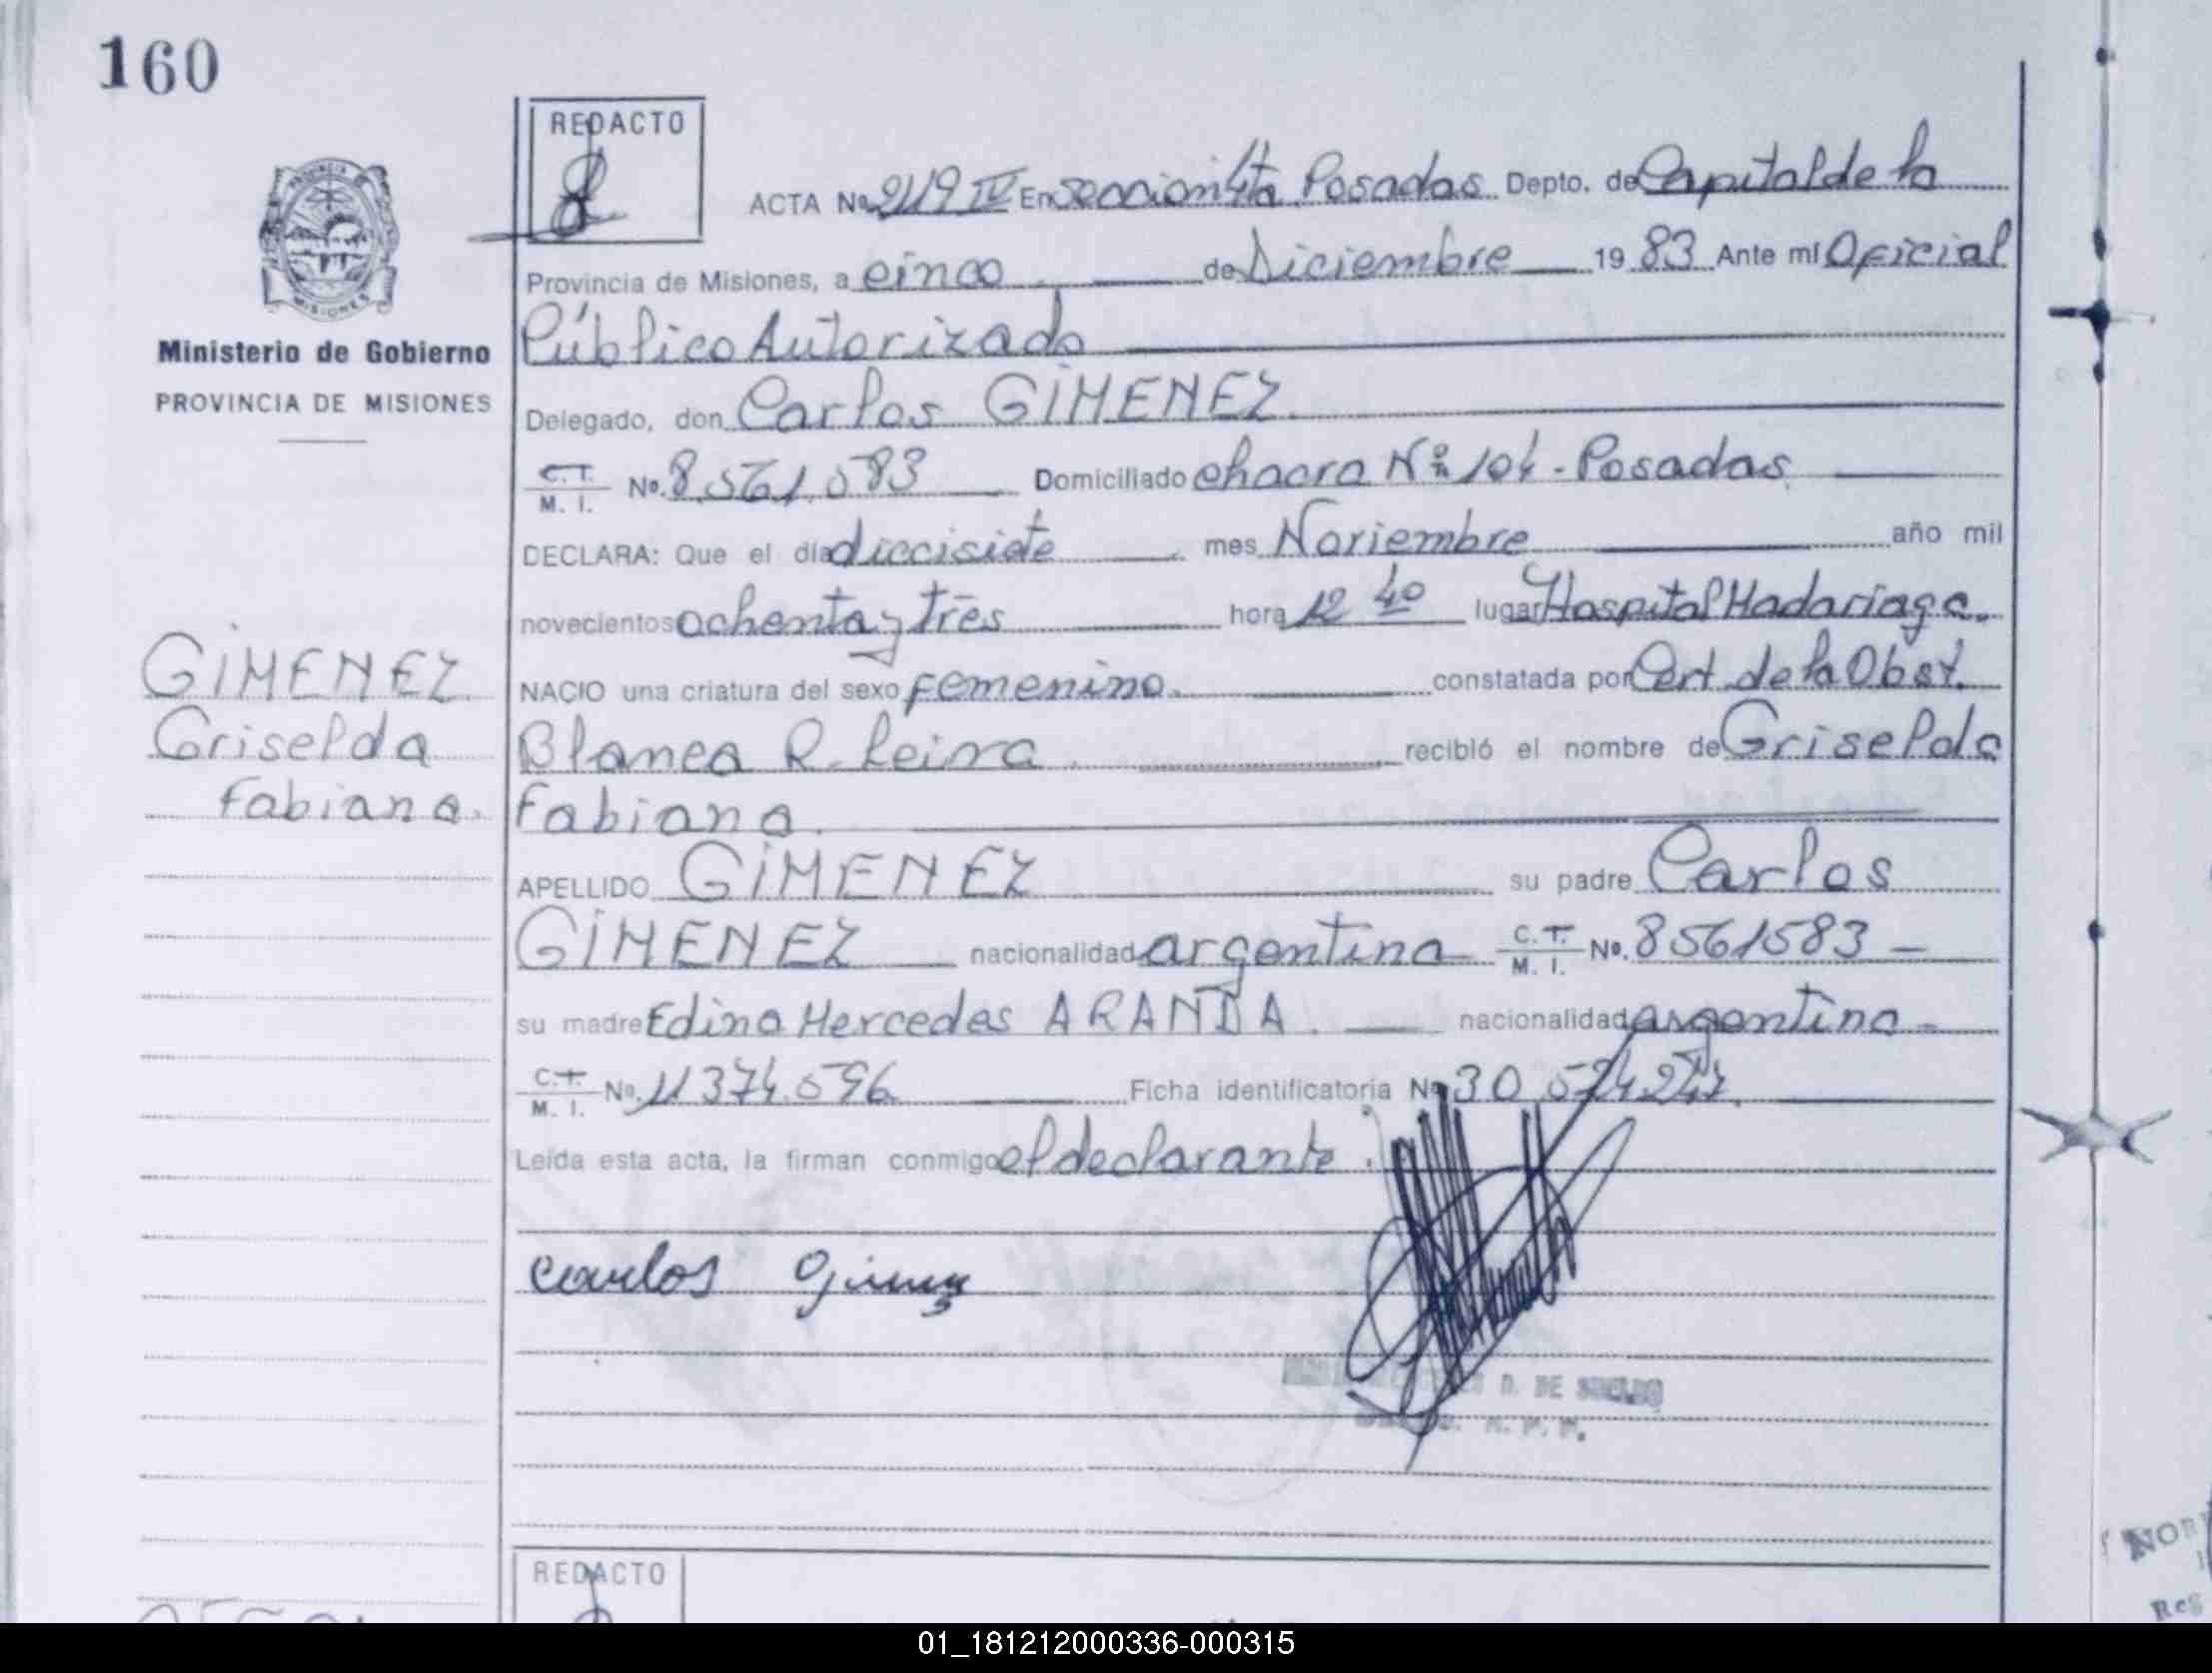 160
REDACTO
ACTA No 2119 IV En sección 4ta Posadas Depto. de Capital de la
Provincia de Misiones, a cinco de Diciembre 1983 Ante mí Oficial
Ministerio de Gobierno
Público Autorizado
PROVINCIA DE MISIONES
Delegado, don Carlos GIMENEZ
C.T. M. I. No. 8.561.583 Domiciliado chacra Nº 104 - Posadas
DECLARA: Que el día diecisiete mes Noviembre año mil
novecientos ochenta y tres hora 12 40 lugar Hospital Madariaga.
GIMENEZ
NACIO una criatura del sexo femenino. constatada por Cert. de la Obst.
Griselda
Blanca R. Leiva recibió el nombre de Griselda
Fabiana.
Fabiana.
APELLIDO GIMENEZ su padre Carlos
GIMENEZ nacionalidad argentina C.T. M. I. No. 8561583 -
su madre Edina Mercedes ARANDA. nacionalidad argentina -
C.T. M. I. No. 11374.596 Ficha identificatoria No 30.574.247.
Leída esta acta, la firman conmigo el declarante.
Carlos Gimenez
D. DE
REDACTO
01_181212000336-000315